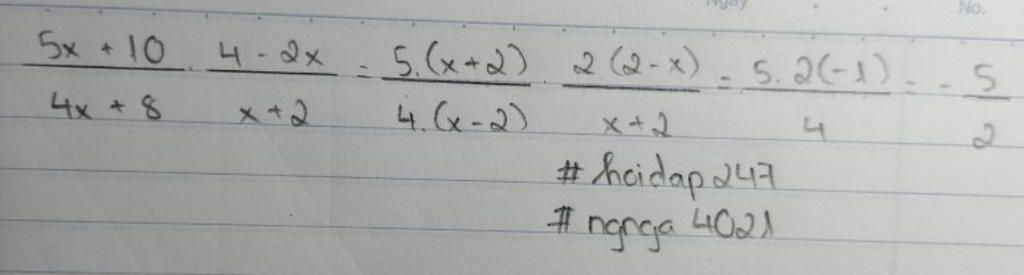 Ngày No.
5x + 10 / 4x + 8 . 4 - 2x / x + 2 = 5.(x+2) / 4.(x-2) . 2(2-x) / x+2 = 5.2(-1) / 4 = - 5 / 2
# hoidap247
# ngnga 4021